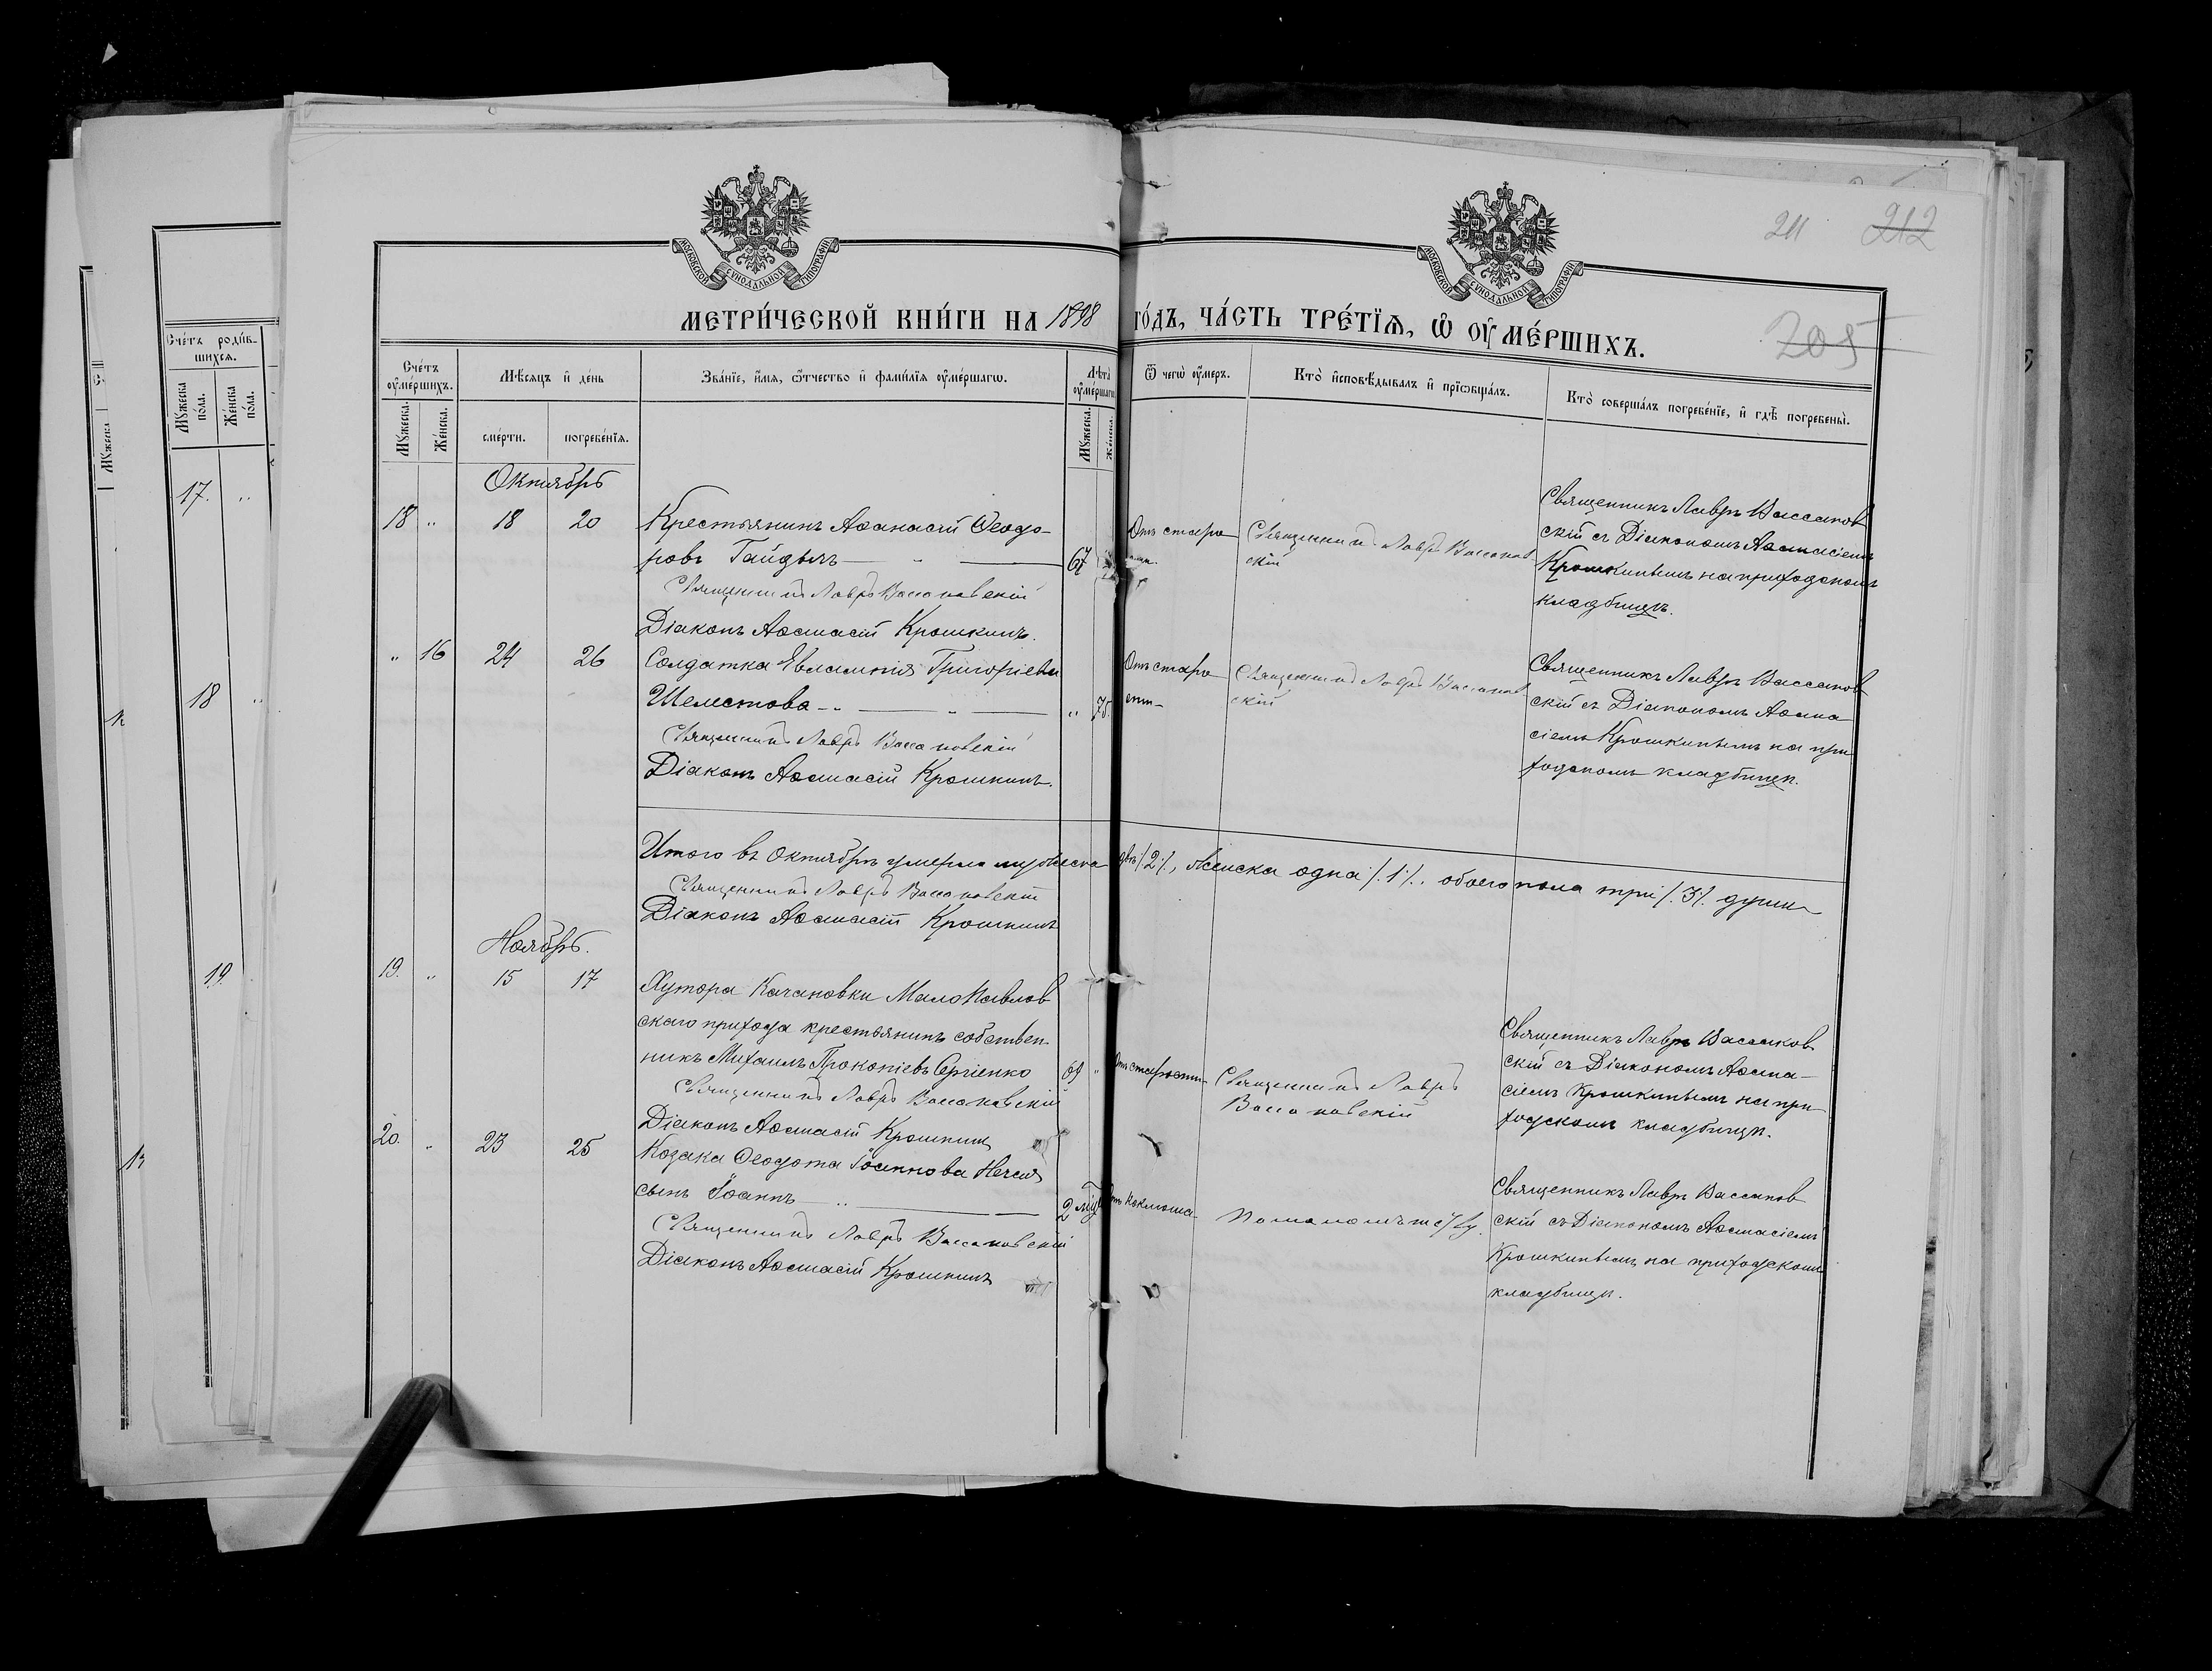 МОСКОВСКОЙ СѴНОДАЛЬНОЙ ТИПОГРАФІИ
МОСКОВСКОЙ СѴНОДАЛЬНОЙ ТИПОГРАФІИ
211 212
205
МЕТРИ́ЧЕСКОЙ КНИ́ГИ НА 1898 ГО́ДЪ, ЧА́СТЬ ТРЕ́ТЇѦ, Ѡ҆ ОУ҆МЕ́РШИХЪ.
Сче́тъ роди́в-
шихсѧ.
Мꙋжеска по́ла.
Же́нска по́ла.
17. „
18 „
19.
Сче́тъ оу҆ме́ршихъ.
Мꙋжеска.
Же́нска.
Мѣ́сѧцъ и҆ де́нь
сме́рти.
погребе́нїѧ.
Зва́нїе, и҆́мѧ, ѻ҆́тчество и҆ фамилїѧ оу҆ме́ршагѡ.
Лѣ́та оу҆ме́ршагѡ
Мꙋжеска.
Же́нска.
Ѿ чегѡ̀ оу҆́меръ.
Кто̀ и҆сповѣ́дывалъ и҆ прїѡбща́лъ.
Кто̀ соверша́лъ погребе́нїе, и҆ гдѣ̀ погребены̀.
Октябрь
18 „ 18 20
Крестьянинъ Аѳанасій Ѳеодо-
ровъ Гайдымъ — „ — 67
Священникъ Лавръ Вассаковскій
Діаконъ Аѳанасій Крошкинъ.
Отъ старо
Священникъ Лавръ Вассаков
скій
Священникъ Лавръ Вассаков
скій съ Діакономъ Аѳанасіемъ
Крошкинымъ на приходскомъ
кладбищѣ.
„ 16 24 26
Солдатка Евлампія Григоріева
Шелестова — „ — „ 75.
Священникъ Лавръ Вассаковскій
Діаконъ Аѳанасій Крошкинъ.
Отъ старо
сти
Священникъ Лавръ Вассаков
скій
Священникъ Лавръ Вассаков
скій съ Діакономъ Аѳана
сіемъ Крошкинымъ на при
ходскомъ кладбищѣ.
Итого въ Октябрѣ умерло мужеска двѣ /.2./., женска одна /.1./., обоего пола три /.3./. души
Священникъ Лавръ Вассаковскій
Діаконъ Аѳанасій Крошкинъ
Ноябрь.
19. „ 15 17
Хутора Качановки МалоПавлов
скаго прихода крестьянинъ собствен-
никъ Михаилъ Прокопіевъ Сергіенко
Священникъ Лавръ Вассаковскій
Діаконъ Аѳанасій Крошкинъ
Отъ старости
Священникъ Лавръ
Вассаковскій
Священникъ Лавръ Вассаков
скій съ Діакономъ Аѳана-
сіемъ Крошкинымъ на при
ходскомъ кладбищѣ.
20. „ 23 25
Козака Ѳеодота Іоаннова Нечая
сынъ Іоаннъ — „ — 2 мѣс
Священникъ Лавръ Вассаковскій
Діаконъ Аѳанасій Крошкинъ
Отъ коклюша
По малолѣтству
Священникъ Лавръ Вассаков
скій съ Діакономъ Аѳанасіемъ
Крошкинымъ на приходскомъ
кладбищѣ.